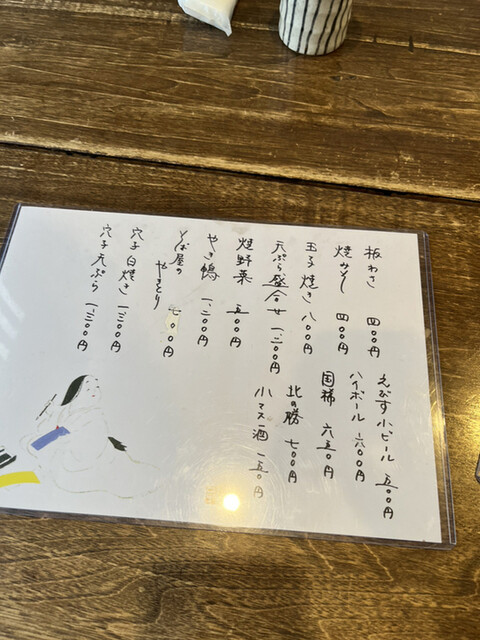 板わさ 四〇〇円
焼みそ 四〇〇円
玉子焼き 八〇〇円
天ぷら盛合せ 一、二〇〇円
煮野菜 五〇〇円
やき鴨 一、二〇〇円
そば屋の
やきとり 七〇〇円
穴子白焼き 一、三〇〇円
穴子天ぷら 一、三〇〇円
えびす小ビール 五〇〇円
ハイボール 六〇〇円
国稀 六五〇円
北の勝 七〇〇円
小マス酒 一五〇円